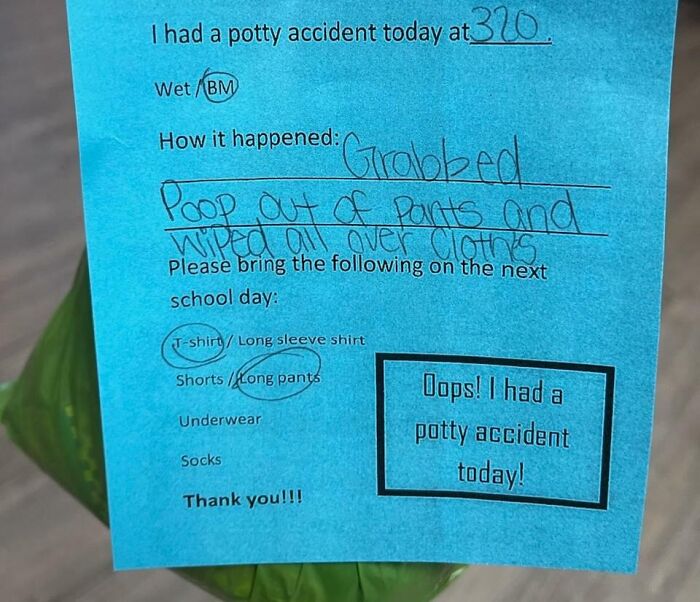 I had a potty accident today at 320.
Wet / BM
How it happened: Grabbed
Poop out of pants and
wiped all over clothes
Please bring the following on the next
school day:
T-shirt / Long sleeve shirt
Shorts / Long pants
Underwear
Socks
Thank you!!!
Oops! I had a
potty accident
today!